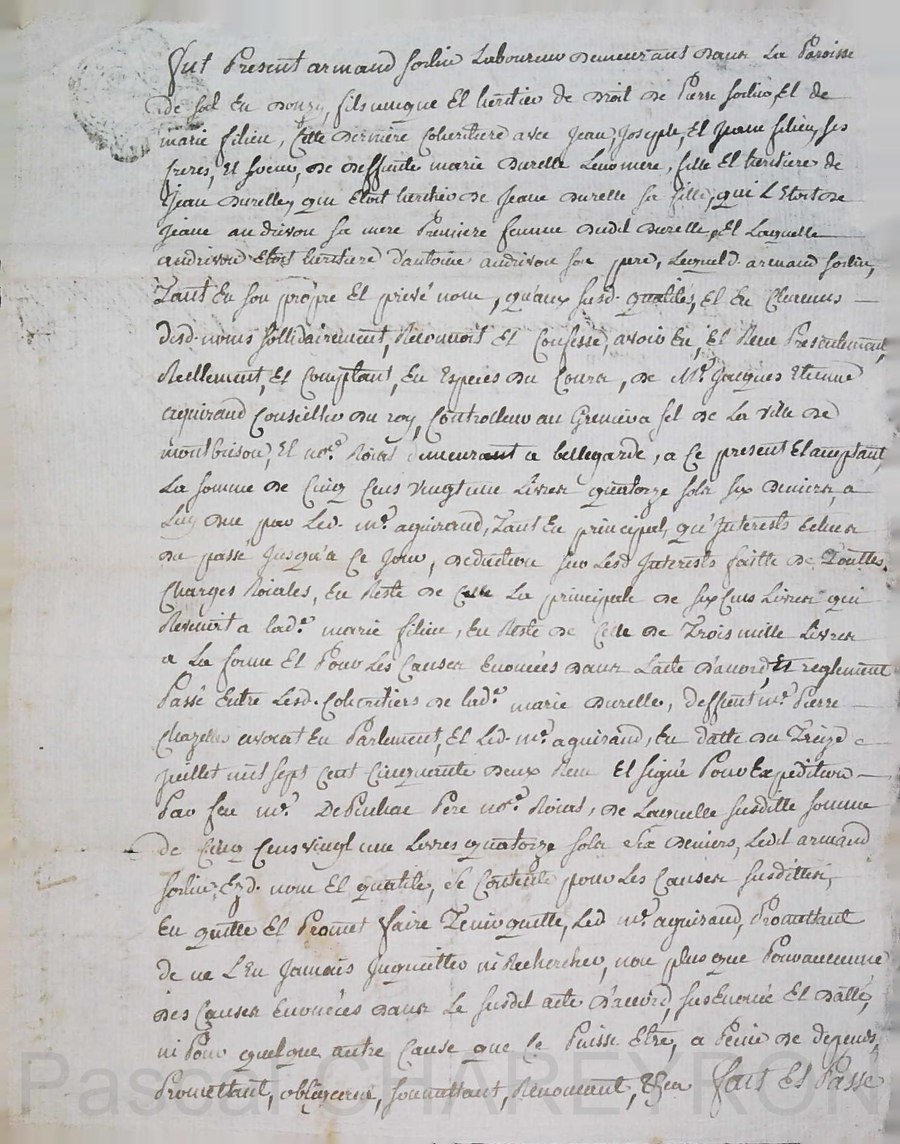 Fut Present armand sorlin Laboureur Demeurant Dans La Paroisse
de sol En Donzy, fils unique Et heritier de Droit de Pierre sorlin, Et de
marie filieu, Cette Derniere Coheritiere avec Jean, Joseph, Et Jeane filieu, ses
freres, Et soeur, de deffunte marie Durelle Leur mere, fille Et heritiere de
Jean Durelle, qui Etoit heritier de Jeane Durelle sa fille, qui L'Etoit de
Jeane andrivon sa mere Premiere femme dudit Durelle, Et Laquelle
andrivon Etoit heritiere d'antoine andrivon son pere, Lequel d. armand sorlin,
Tant En son propre Et privé nom, qu'aux susd. qualités, Et En Chacuns
desd. noms sollidairement, Reconnoit Et Confesse, avoir Eu, Et Receu Presentement,
Reellement, Et Comptant, En Especes du Cours, de Mr. Jacques Etienne
aguiraud Conseiller du roy, Controlleur au Grenier a sel de La Ville de
montbrison, Et nore. Roial demeurant a bellegarde, a ce present Et acceptant,
La somme de Cinq Cens vingt une Livres quatorze sols six deniers, a
Luy due par Led. mr. aguiraud, Tant En principal, qu'Interests Echus
du passé Jusqu'a Ce Jour, deduction sur Lesd. Interests faitte de Touttes
Charges Roiales, En Reste de Celle La principale de six Cens Livres qui
Revenoit a lade. marie filieu, En Reste de Celle de Trois mille Livres
a La forme Et Pour Les Causes Enoncées Dans L'acte D'accord, Et reglement
Passé Entre Lesd. Coheritiers de lade. marie Durelle, deffunt mr. Pierre
Chazelles avocat En Parlement, Et Led. mr. aguiraud, En datte du Treize
juillet mil sept Cent Cinquante deux Receu Et signé Pour Expedition
Par feu mr. Pere nore. Roial, de Laquelle susditte somme
de Cinq Cens vingt une Livres quatorze sols six Deniers, Ledit armand
sorlin Ezd. nom Et qualité, se Contente pour Les Causes susdittes,
En quitte Et Promet faire Tenir quitte, Led. mr. aguiraud, Promettant
de ne L'En Jamais Inquietter ni Rechercher, non plus que Pour aucune
des Causes Enoncées dans Le susdit acte D'accord, sus Enoncé Et datté,
ni Pour quelque autre Cause que Ce Puisse Etre, a Peine de depends,
Promettant, obligeant, soumettant, Renoncant, &ca Fait Et Passé
Pascal CHAREYRON